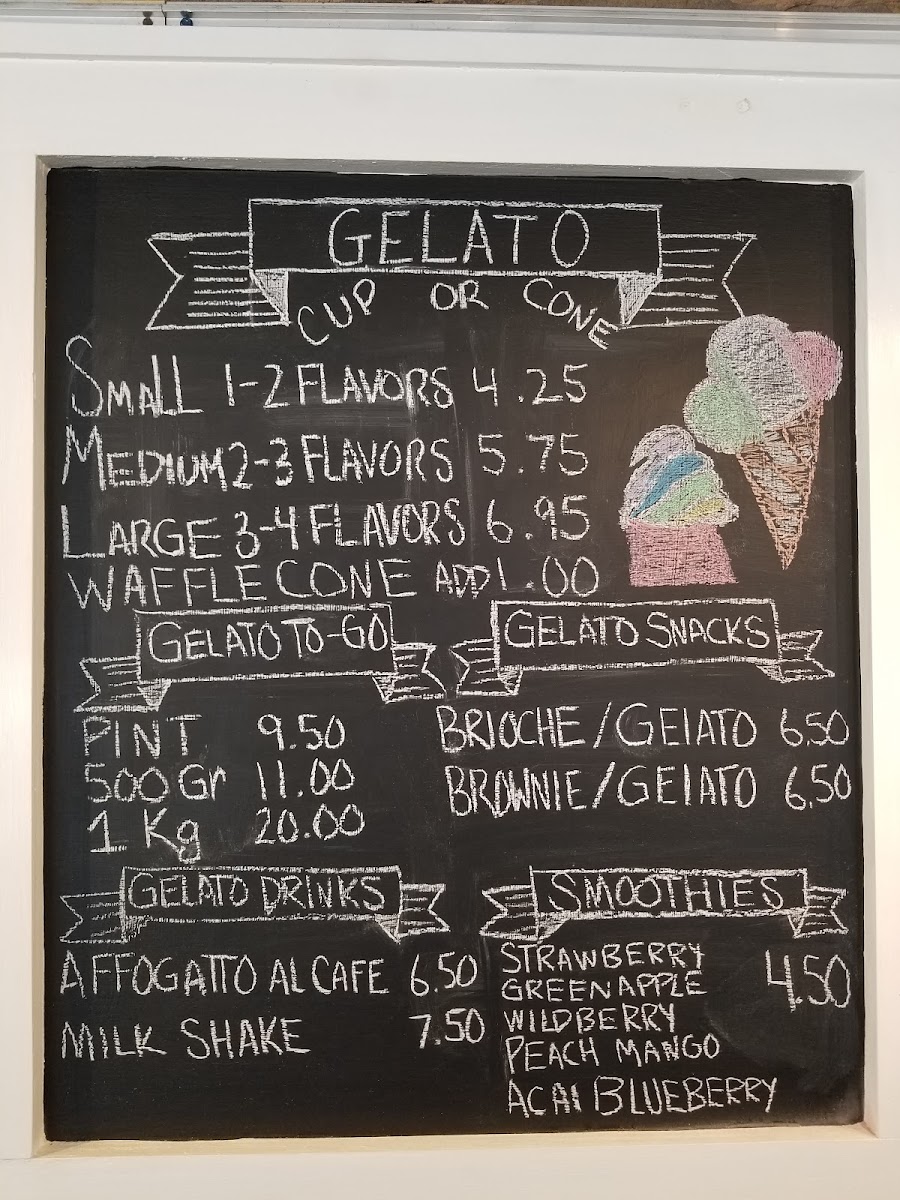 GELATO
CUP OR CONE
SMALL 1-2 FLAVORS 4.25
MEDIUM 2-3 FLAVORS 5.75
LARGE 3-4 FLAVORS 6.95
WAFFLE CONE ADD 1.00
GELATO TO-GO
PINT 9.50
500 Gr 11.00
1 Kg 20.00
GELATO SNACKS
BRIOCHE/GElATO 6.50
BROWNIE/GElATO 6.50
GELATO DRINKS
AFFOGATTO AL CAFE 6.50
MILK SHAKE 7.50
SMOOTHIES
STRAWBERRY 4.50
GREEN APPLE
WILDBERRY
PEACH MANGO
ACAI BLUEBERRY